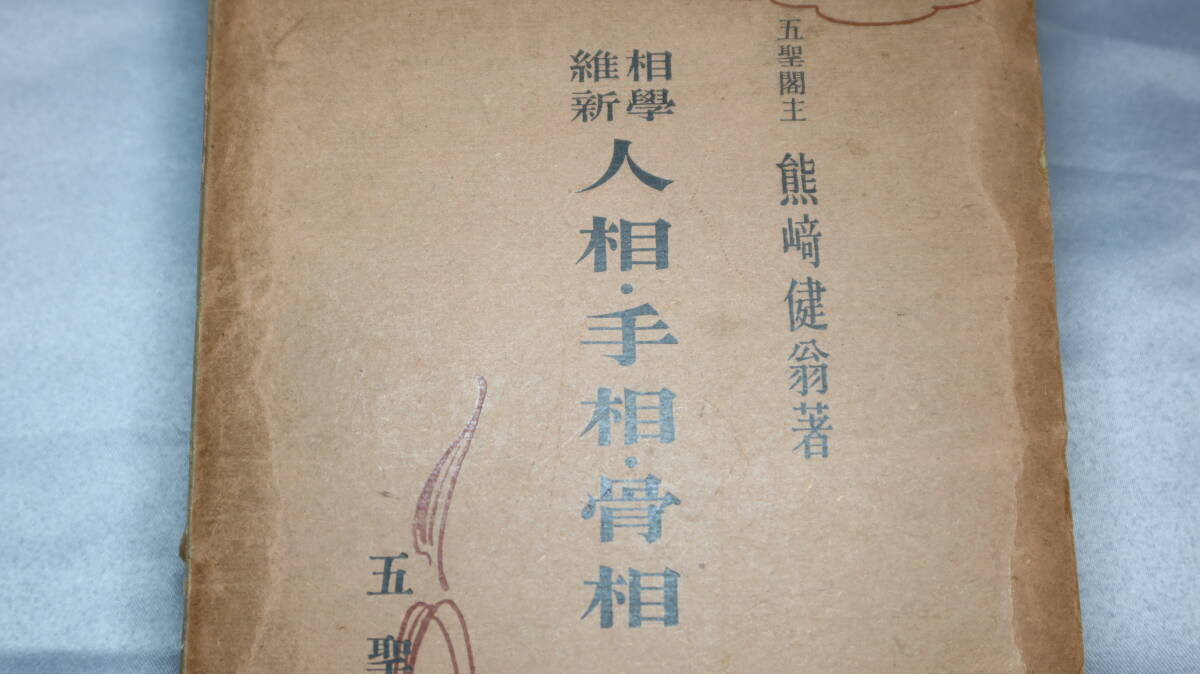 五聖閣主 熊﨑健翁著
相學維新 人相・手相・骨相
五聖